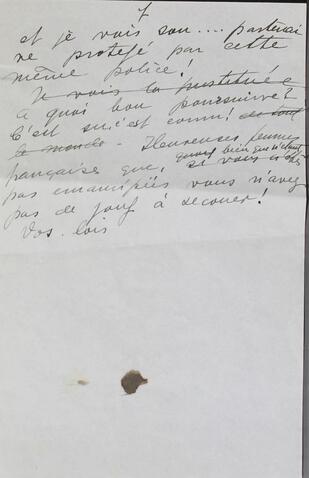 7
et je vois son .... partenai
re protégé par cette
même police!
Je vois la prostituée
a quoi bon poursuivre?
C'est su, c'est connu! de tout
le monde - Heureuses femmes
françaises que, quoique bien que n'étant
pas emancipées vous n'avez
pas de joug à secouer!
Vos lois